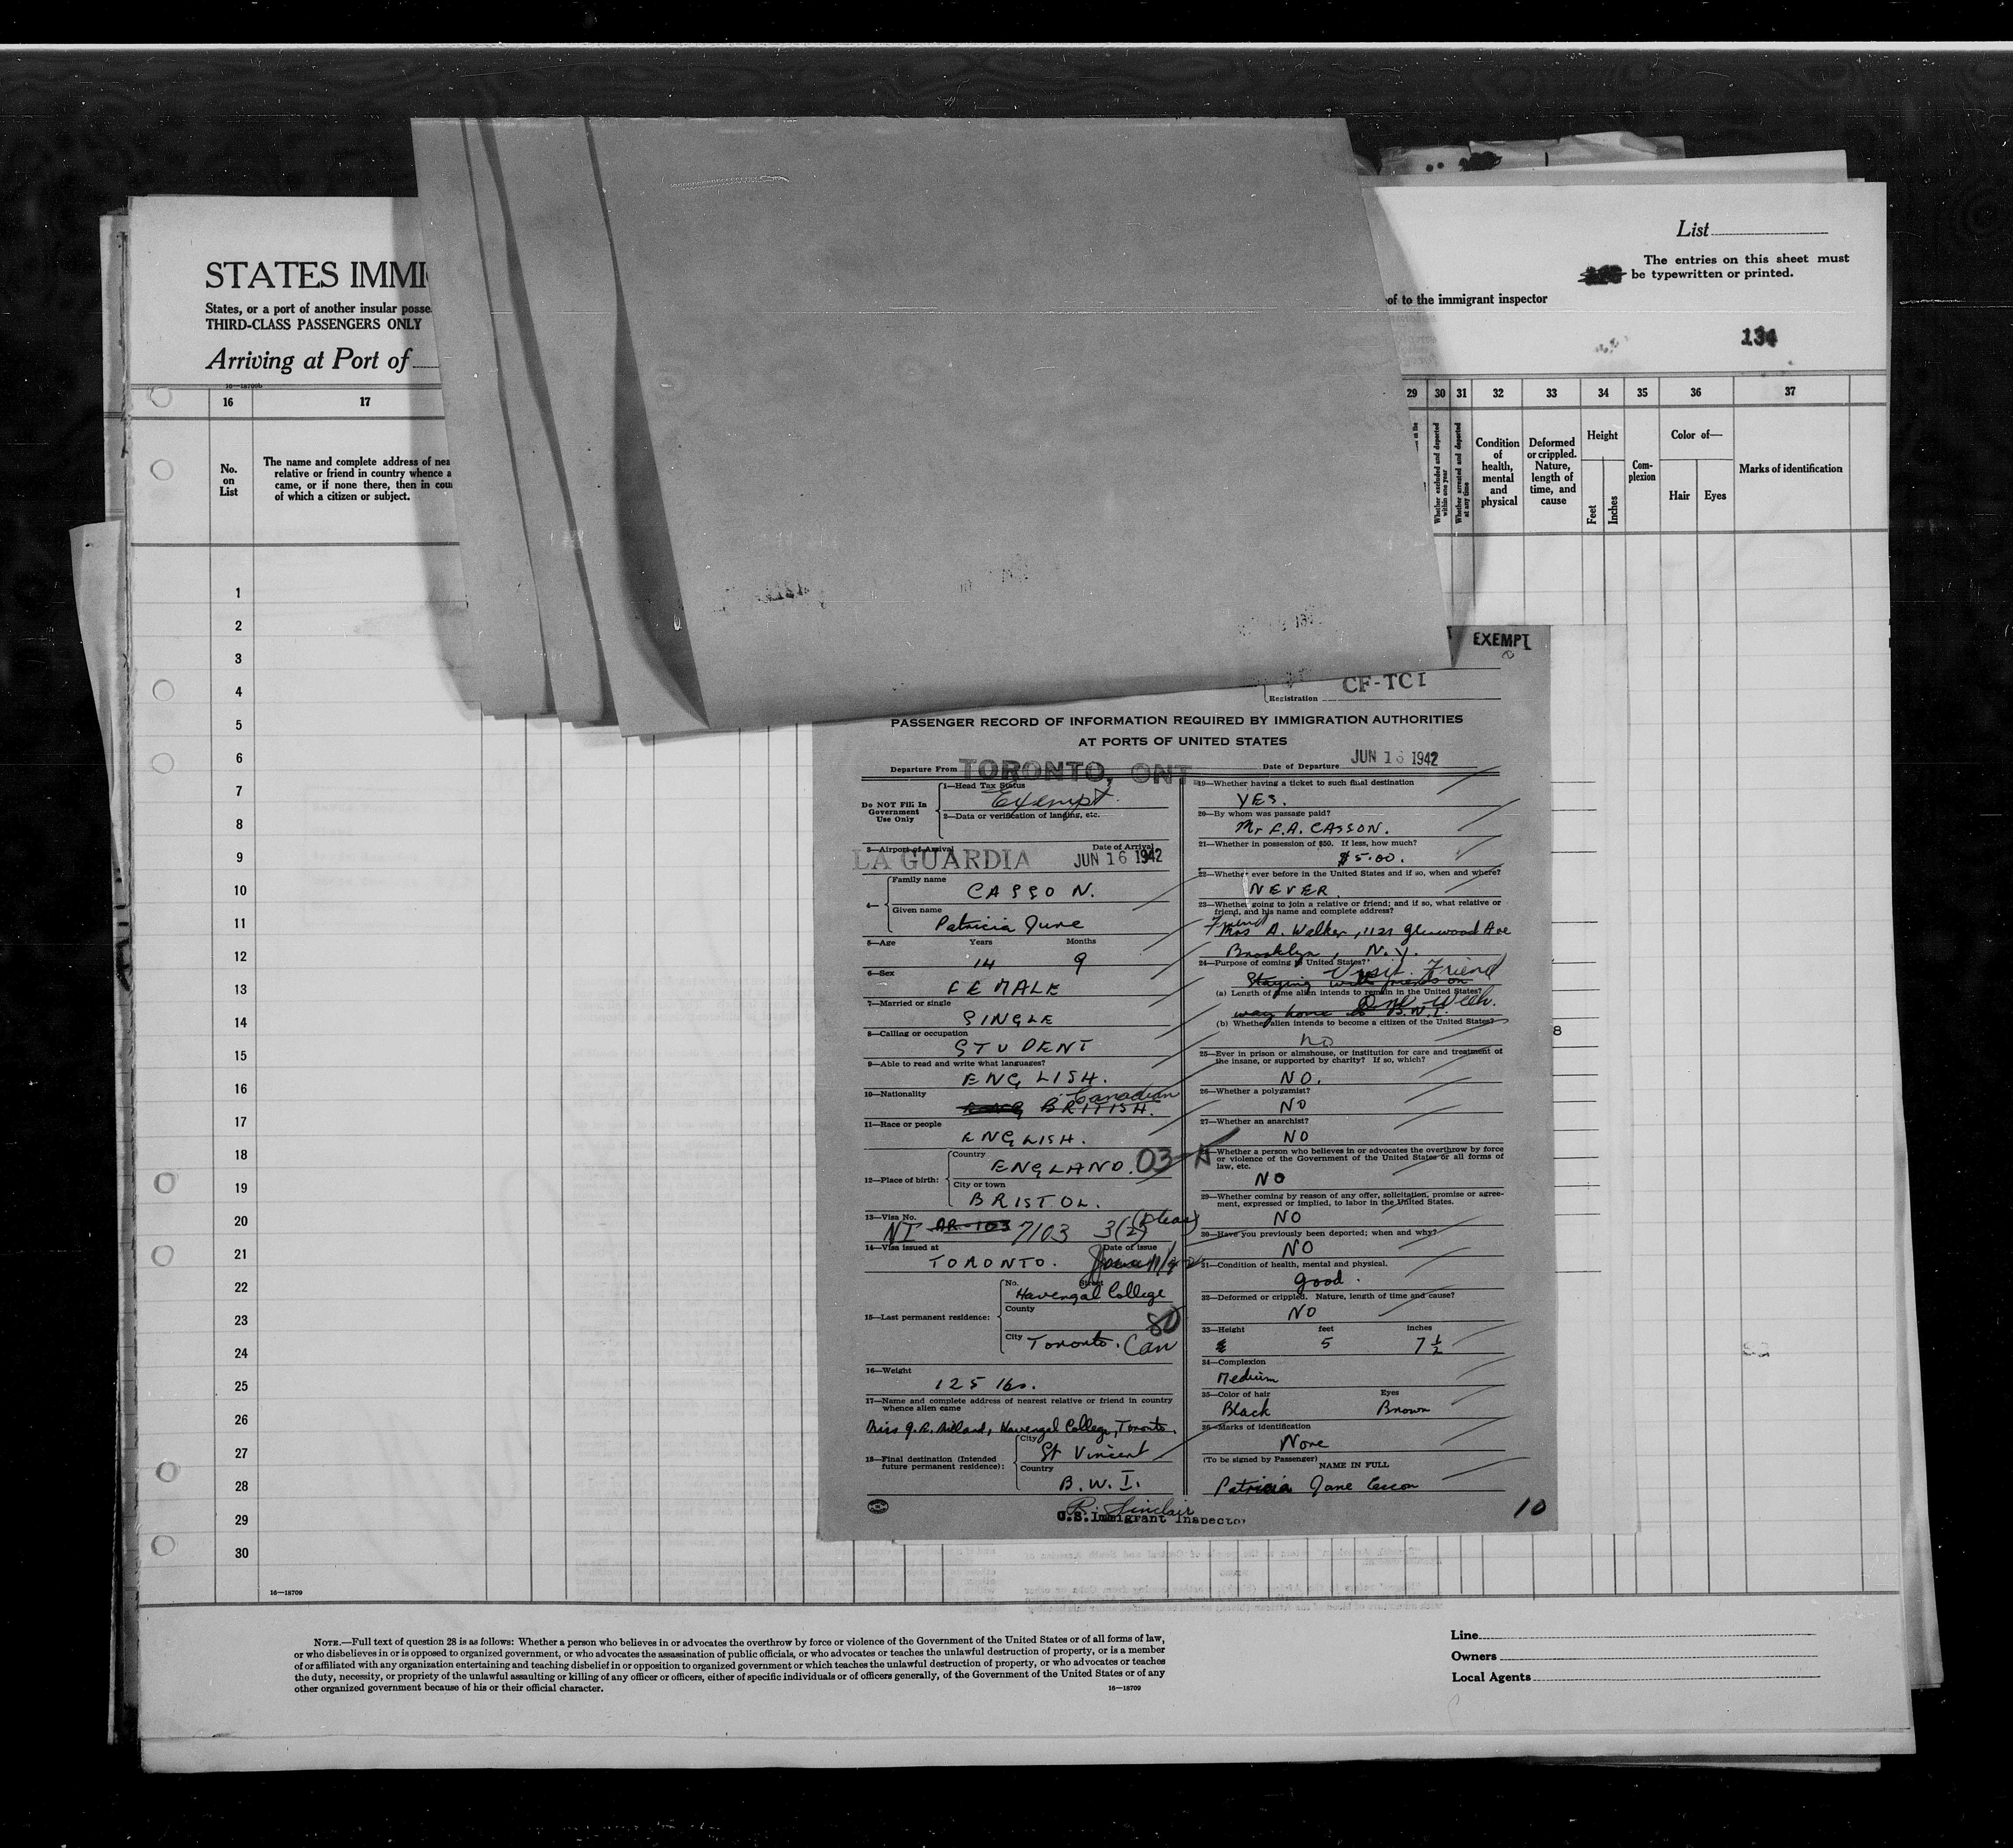 List
The entries on this sheet must
be typewritten or printed.
STATES IMMI
States, or a port of another insular posse
of to the immigrant inspector
THIRD-CLASS PASSENGERS ONLY
134
Arriving at Port of
16—18709b
16 17 29 30 31 32 33 34 35 36 37
No. on List
The name and complete address of nea
relative or friend in country whence a
came, or if none there, then in cou
of which a citizen or subject.
Whether excluded and deported within one year
Whether arrested and deported at any time
Condition of health, mental and physical
Deformed or crippled. Nature, length of time, and cause
Height
Feet Inches
Com-plexion
Color of—
Hair Eyes
Marks of identification
1
2
3
4
5
6
7
8
9
10
11
12
13
14
15
16
17
18
19
20
21
22
23
24
25
26
27
28
29
30
16—18709
EXEMPT
Registration CF-TCI
PASSENGER RECORD OF INFORMATION REQUIRED BY IMMIGRATION AUTHORITIES
AT PORTS OF UNITED STATES
Departure From TORONTO, ONT
Date of Departure JUN 16 1942
Do NOT Fill In Government Use Only
1—Head Tax Status
Exempt
2—Data or verification of landing, etc.
3—Airport of Arrival Date of Arrival
LA GUARDIA JUN 16 1942
4— Family name
CASSON.
Given name
Patricia June
5—Age Years Months
14 9
6—Sex
FEMALE
7—Married or single
SINGLE
8—Calling or occupation
STUDENT
9—Able to read and write what languages?
ENGLISH.
10—Nationality
Canadian
BRITISH.
11—Race or people
ENGLISH.
12—Place of birth: Country
ENGLAND. 03
City or town
BRISTOL.
13—Visa No.
NI AR-103 7103 3(2)
14—Visa issued at Date of issue
TORONTO.
15—Last permanent residence: No. Street
Havengal College
County
80
City Toronto. Can
16—Weight
125 lbs.
17—Name and complete address of nearest relative or friend in country
whence alien came
Miss G. E. Millard, Havengal College, Toronto.
18—Final destination (Intended future permanent residence): City
St Vincent
Country
B.W.I.
19—Whether having a ticket to such final destination
YES.
20—By whom was passage paid?
Mr F.A. CASSON.
21—Whether in possession of $50. If less, how much?
$5.00.
22—Whether ever before in the United States and if so, when and where?
NEVER
23—Whether going to join a relative or friend; and if so, what relative or
friend, and his name and complete address?
Friend
Mrs A. Walker, 1121 Glenwood Ave
Brooklyn, N.Y.
24—Purpose of coming to United States?
Visit Friend
Staying with friends on
(a) Length of time alien intends to remain in the United States?
One Week.
way home to B.W.I.
(b) Whether alien intends to become a citizen of the United States?
no
25—Ever in prison or almshouse, or institution for care and treatment of
the insane, or supported by charity? If so, which?
NO.
26—Whether a polygamist?
NO
27—Whether an anarchist?
NO
Whether a person who believes in or advocates the overthrow by force
or violence of the Government of the United States or all forms of
law, etc.
NO
29—Whether coming by reason of any offer, solicitation, promise or agree-
ment, expressed or implied, to labor in the United States.
NO
30—Have you previously been deported; when and why?
NO
31—Condition of health, mental and physical.
good.
32—Deformed or crippled. Nature, length of time and cause?
NO
33—Height feet inches
5 7 1/2
34—Complexion
Medium
35—Color of hair Eyes
Black Brown
36—Marks of identification
None
(To be signed by Passenger) NAME IN FULL
Patricia June Casson
R. Sinclair
U.S. Immigrant Inspector
10
8
NOTE.—Full text of question 28 is as follows: Whether a person who believes in or advocates the overthrow by force or violence of the Government of the United States or of all forms of law,
or who disbelieves in or is opposed to organized government, or who advocates the assassination of public officials, or who advocates or teaches the unlawful destruction of property, or is a member
of or affiliated with any organization entertaining and teaching disbelief in or opposition to organized government or which teaches the unlawful destruction of property, or who advocates or teaches
the duty, necessity, or propriety of the unlawful assaulting or killing of any officer or officers, either of specific individuals or of officers generally, of the Government of the United States or of any
other organized government because of his or their official character.
16—18709
Line
Owners
Local Agents